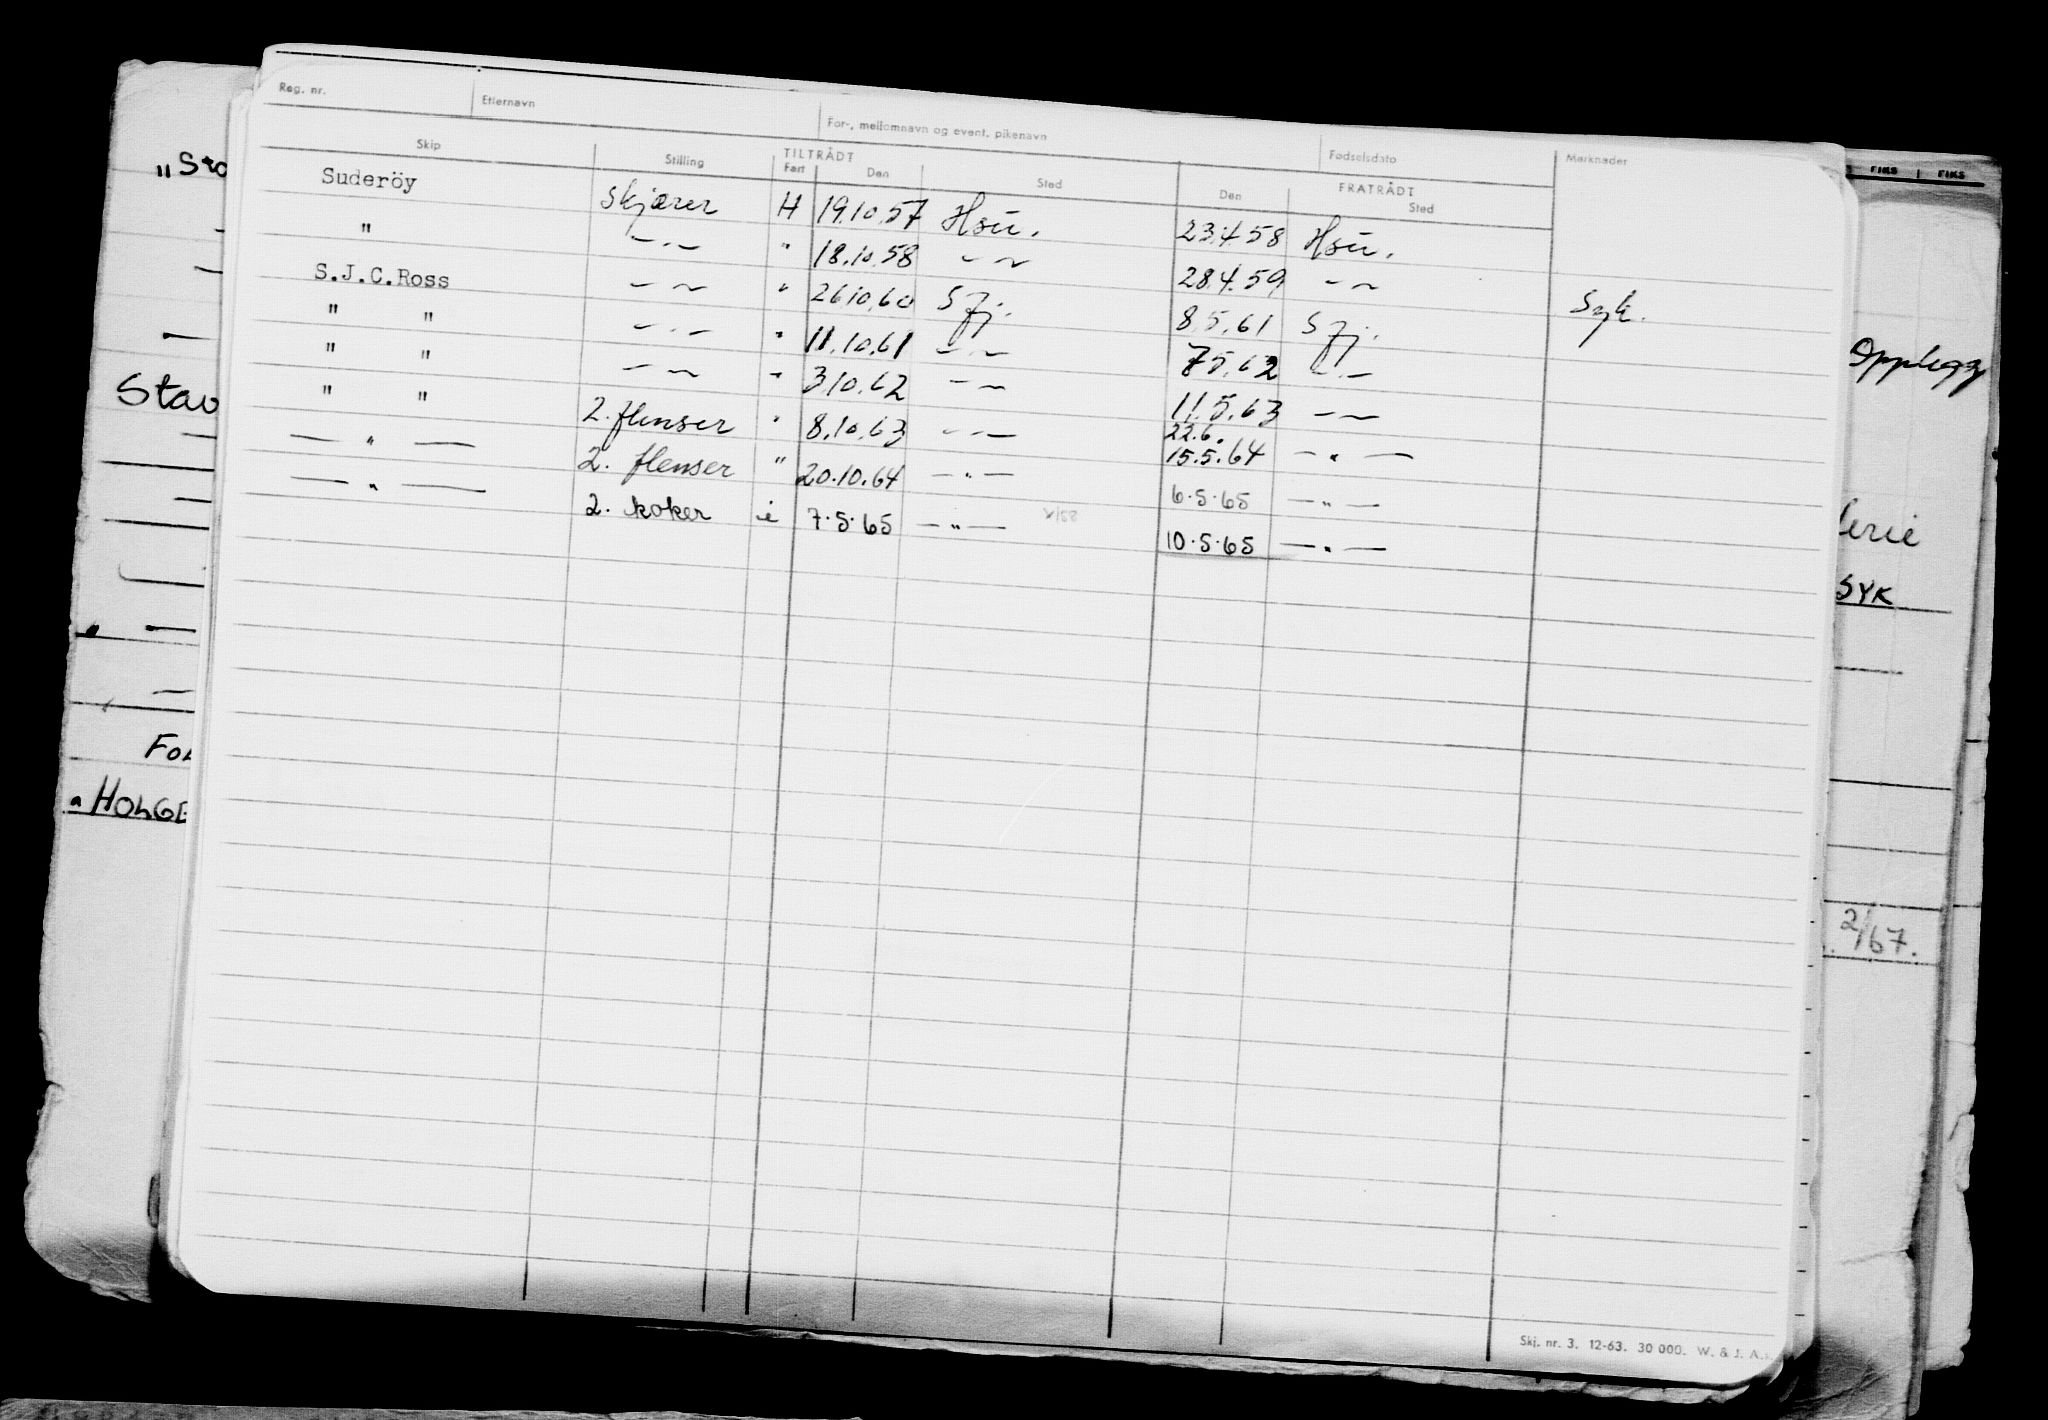 Reg. nr. Etternavn For-, mellomnavn og event. pikenavn Fødselsdato Merknader
Skip Stilling TILTRÅDT FRATRÅDT
Fart Den Sted Den Sted
Suderöy Skjærer H 19.10.57 Hsu. 23.4.58 Hsu.
" —.— " 18.10.58 —.— 28.4.59 —.—
S.J.C.Ross —.— " 26.10.60 Sfj. 8.5.61 Sfj. Syk.
" " —.— " 11.10.61 —.— 7.5.62 —.—
" " —.— " 3.10.62 —.— 11.5.63 —.—
" " 2. flenser " 8.10.63 —.— 22.6. 15.5.64 — " —
— " — 2. flenser " 20.10.64 — " — 6.5.65 — " —
— " — 2. koker i 7.5.65 — " — 10.5.65 — " —
Skj. nr. 3. 12-63. 30 000. W. & J. A.s.
"Sto
Stav
For
"HOLGE
FIKS FIKS
Opplegg
lerie
SYK
2/67.